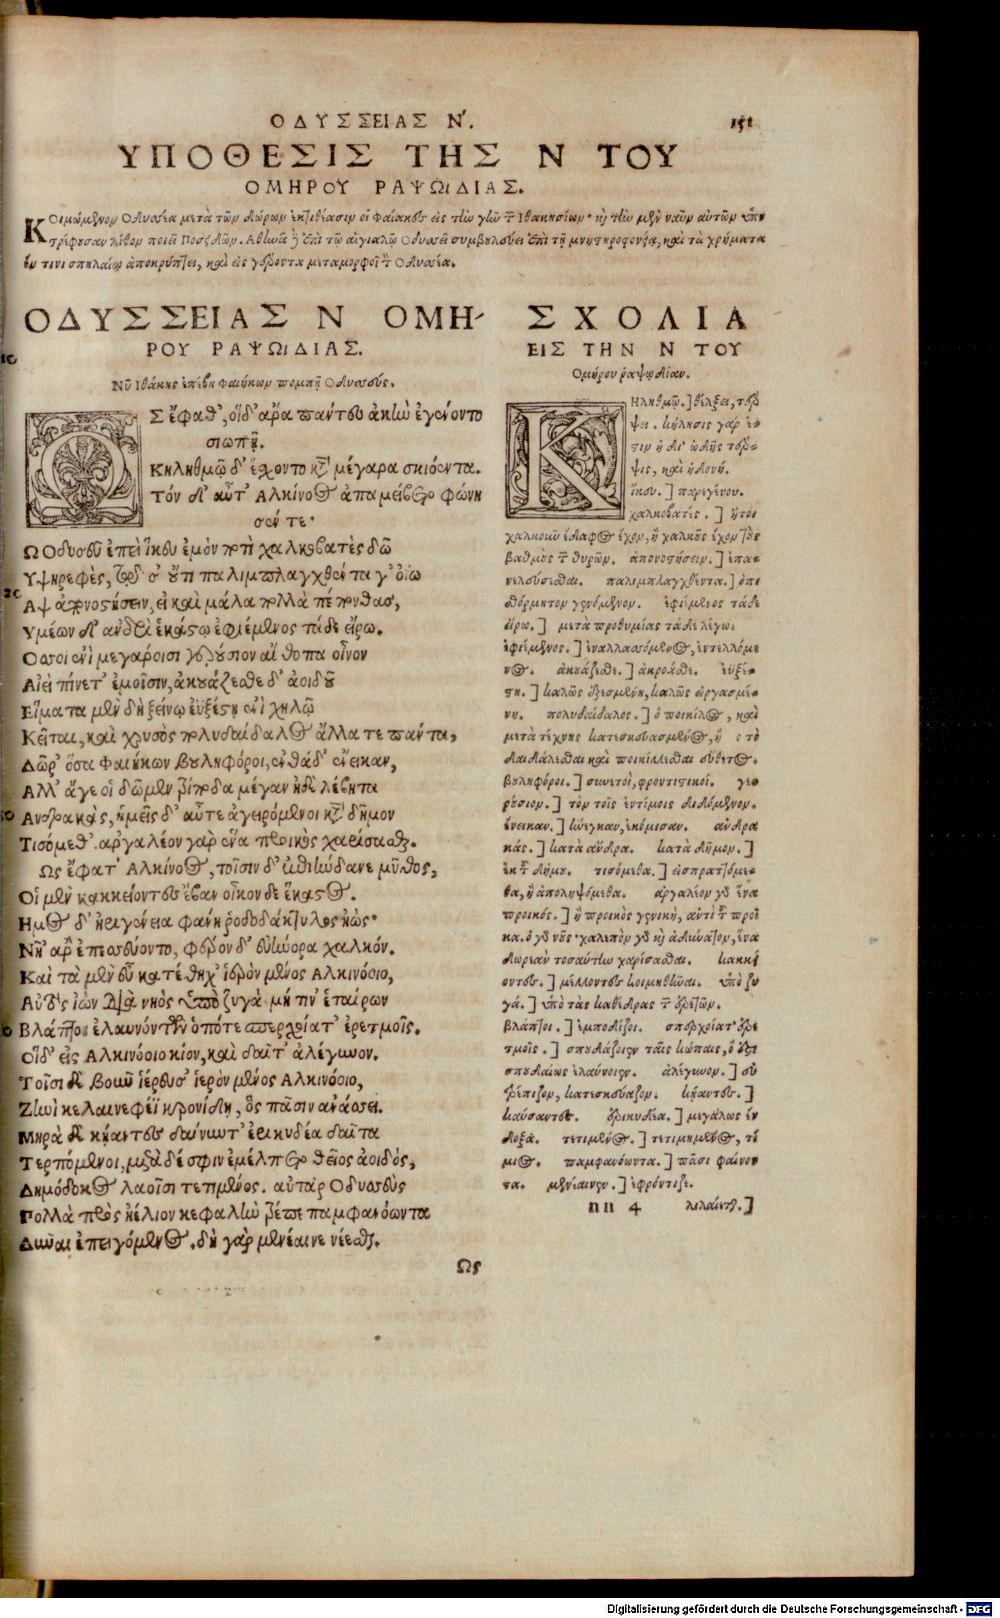 ΟΔΥΣΣΕΙΑΣ Ν'. 151
ΥΠΟΘΕΣΙΣ ΤΗΣ Ν ΤΟΥ
ΟΜΗΡΟΥ ΡΑΨΩΙΔΙΑΣ.
Κοιμώμενον Οδυσσέα μετὰ τῶν δώρων ἐκτιθέασιν οἱ Φαίακες εἰς τὴν γῆν τ Ιθακησίων· κὴ τὴν μὲν ναῦν αὐτῶν
στρέφουσαν λίθον ποιεῖ Ποσειδῶν. Αθηνᾶ ἐπὶ τῷ αἰγιαλῷ Οδυσσεῖ συμβουλεύει ἐπὶ τῇ μνηστηροφονίᾳ, καὶ τὰ χρήματα
ἔν τινι σπηλαίῳ ἀποκρύπτει, καὶ εἰς γέροντα μεταμορφοῖ τ Οδυσσέα.
ΟΔΥΣΣΕΙΑΣ Ν ΟΜΗ-
ΡΟΥ ΡΑΨΩΙΔΙΑΣ.
Νῦ Ιθάκης ἐπέβη Φαιήκων πομπῇ Οδυσσεύς.
Ως ἔφαθ', οἱ δ' ἄρα πάντες ἀκὴν ἐγένοντο
σιωπῇ.
Κηληθμῷ δ' ἔσχοντο κατὰ μέγαρα σκιόεντα.
Τὸν δ' αὖτ' Αλκίνοος ἀπαμείβετο φώνη
σέν τε·
Ω Οδυσεῦ ἐπεὶ ἵκευ ἐμὸν ποτὶ χαλκοβατὲς δῶ
Υψηρεφὲς, τῷ σ' οὔτι παλιμπλαγχθέντα γ' ὀΐω
Αψ ἀπονοστήσειν, εἰ καὶ μάλα πολλὰ πέπονθας,
Υμέων δ' ἀνδρὶ ἑκάστῳ ἐφιέμενος τάδε εἴρω.
Οσσοι ἐνὶ μεγάροισι γερούσιον αἴθοπα οἶνον
Αἰεὶ πίνετ' ἐμοῖσιν, ἀκουάζεσθε δ' ἀοιδοῦ
Εἵματα μὲν δὴ ξείνῳ ἐϋξέστῃ ἐνὶ χηλῷ
Κεῖται, καὶ χρυσὸς πολυδαίδαλος ἄλλα τε πάντα,
Δῶρ' ὅσα Φαιήκων βουληφόροι, ἐνθάδ' ἔνεικαν,
Αλλ' ἄγε οἱ δῶμεν τρίποδα μέγαν ἠδὲ λέβητα
Ανδρακὰς, ἡμεῖς δ' αὖτε ἀγειρόμενοι κατὰ δῆμον
Τισόμεθ'. ἀργαλέον γὰρ ἕνα προικὸς χαρίσασθαι.
Ως ἔφατ' Αλκίνοος, τοῖσιν δ' ἐπιήνδανε μῦθος,
Οἱ μὲν κακκείοντες ἔβαν οἶκον δὲ ἕκαστος.
Ημος δ' ἠριγένεια φάνη ῥοδοδάκτυλος ἠὼς·
Νῆ' ἄρ' ἐπεσσεύοντο, φέρον δ' εὐήνορα χαλκόν.
Καὶ τὰ μὲν εὖ κατέθηχ' ἱερὸν μένος Αλκινόοιο,
Αὐτὸς ἰὼν διὰ νηὸς ὑπὸ ζυγὰ· μή τιν' ἑταίρων
Βλάπτοι ἐλαυνόντων ὁπότε σπερχοίατ' ἐρετμοῖς.
Οἱ δ' εἰς Αλκινόοιο κίον, καὶ δαῖτ' ἀλέγυνον.
Τοῖσι δὲ βοῦν ἱέρευσ' ἱερὸν μένος Αλκινόοιο,
Ζηνὶ κελαινεφέϊ κρονίδῃ, ὃς πᾶσιν ἀνάσσει.
Μηρὰ δὲ κήαντες δαίνυντ' ἐρικυδέα δαῖτα
Τερπόμενοι, μετὰ δέ σφιν ἐμέλπετο θεῖος ἀοιδός,
Δημόδοκος λαοῖσι τετιμένος. αὐτὰρ Οδυσσεὺς
Πολλὰ πρὸς ἠέλιον κεφαλὴν τρέπε παμφανόωντα
Δῦναι ἐπειγόμενος. δὴ γὰρ μενέαινε νέεσθαι.
Ως
ΣΧΟΛΙΑ
ΕΙΣ ΤΗΝ Ν ΤΟΥ
Ομήρου ῥαψῳδίαν.
Κηληθμῷ.] θέλξει, τέρ
ψει. κήλησις γάρ ἐ-
στιν ἡ δι' ᾠδῆς τέρ-
ψις, καὶ ἡδονή.
ἵκευ.] παρεγένου.
χαλκοβατές.] ἤτοι
χαλκοῦν ἔδαφος ἔχον, ἢ χαλκοῦς ἔχον τοὺς
βαθμοὺς τ θυρῶν. ἀπονοστήσειν.] ἐπα-
νελεύσεσθαι. παλιμπλαγχθέντα.] ὀπι
θόρμητον γενόμενον. ἐφιέμενος τάδε
εἴρω.] μετὰ προθυμίας τάδε λέγω.
ἐφιέμενος.] ἐναλλασσόμενος, ἐντελλόμε
νος. ἀκουάζεσθε.] ἀκροᾶσθε. εὐξέ-
στῃ.] καλῶς ἐξεσμένῃ, καλῶς εἰργασμέ-
νῃ. πολυδαίδαλος.] ὁ ποικίλος, καὶ
μετὰ τέχνης κατεσκευασμένος, ἢ τὸ
δαιδάλεσθαι καὶ ποικίλλεσθαι εὑρετός.
βουληφόροι.] συνετοὶ, φροντιστικοί. γε-
ρούσιον.] τὸν τοῖς ἐντίμοις διδόμενον.
ἔνεικαν.] ἤνεγκαν, ἐκόμισαν. ἀνδρα
κάς.] κατὰ ἄνδρα. κατὰ δῆμον.]
ἐκ τ δήμου. τισόμεθα.] εἰσπραξόμε-
θα, ἢ ἀποληψόμεθα. ἀργαλέον γδ ἕνα
προικός.] ἢ προικὸς γενικὴ, ἀντὶ τ προῖ
κα. ὁ γδ νοῦς· χαλεπὸν γδ κὴ ἀδύνατον, ἕνα
δωρεὰν τοσαύτην χαρίσασθαι. κακκεί
οντες.] μέλλοντες κοιμηθῆναι. ὑπὸ ζυ
γά.] ὑπὸ τὰς καθέδρας τ ἐρετῶν.
βλάπτοι.] ἐμποδίζοι. σπερχοίατ' ἐρε
τμοῖς.] σπουδάζοιεν ταῖς κώπαις, ὅ ἐστι
σπουδαίως ἐλαύνοιεν. ἀλέγυνον.] εὐ
τρέπιζον, κατεσκεύαζον. κήαντες.]
καύσαντες. ἐρικυδέα.] μεγάλως ἔν
δοξα. τετιμένος.] τετιμημένος, τί
μιος. παμφανόωντα.] πᾶσι φαίνον
τα. μενέαινεν.] ἐφρόντιζε.
nn 4 λιλαίεται.]
Digitalisierung gefördert durch die Deutsche Forschungsgemeinschaft - DFG